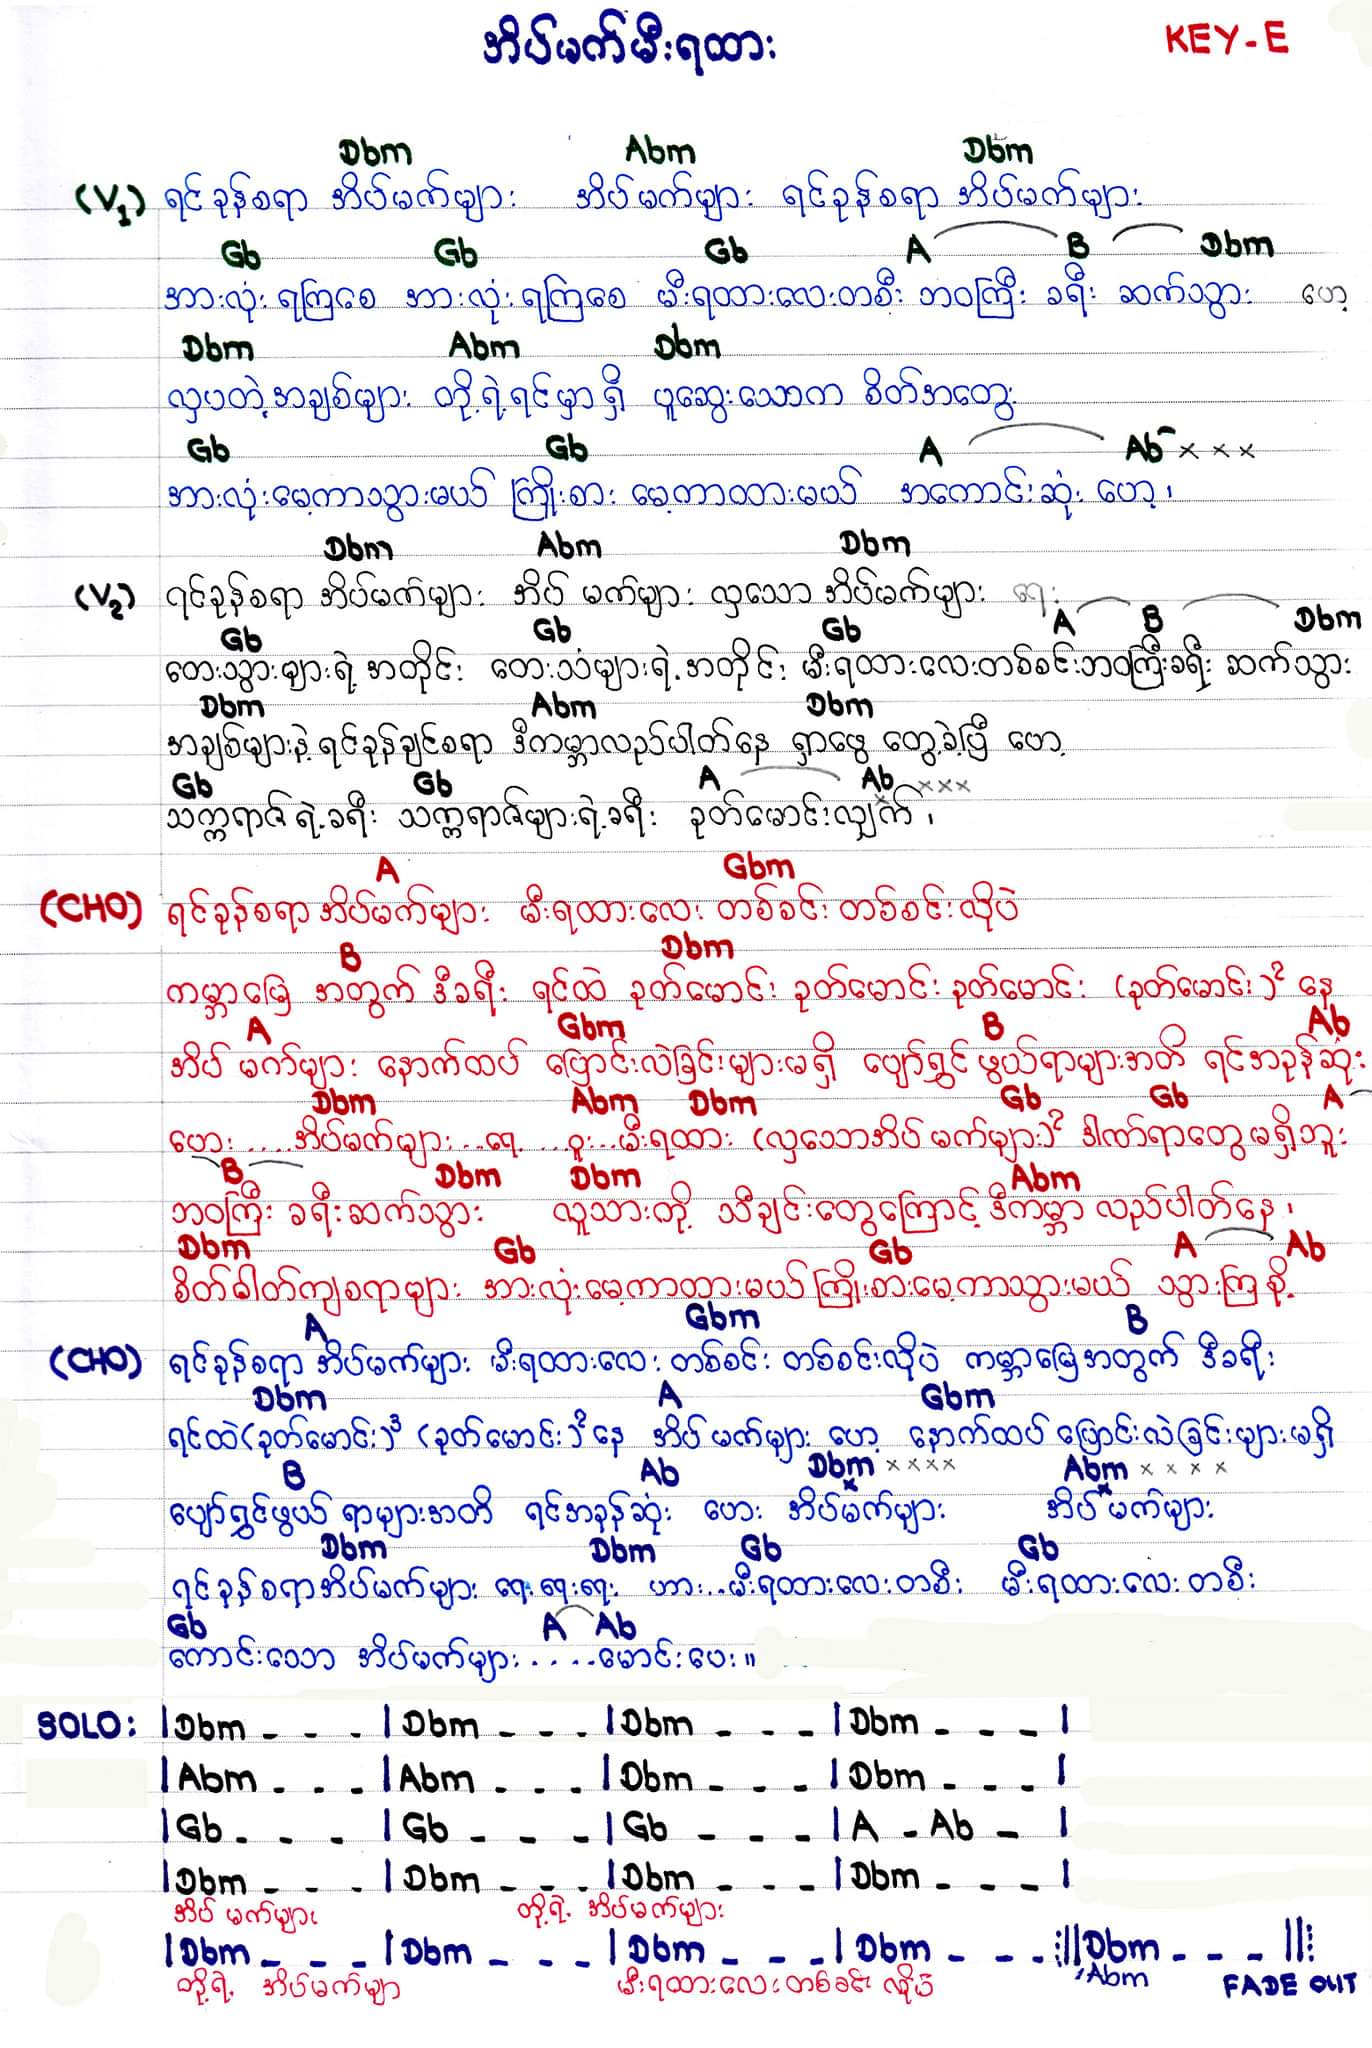 အိပ်မက်မီးရထား
KEY-E
Dbm Abm Dbm
(V1) ရင်ခုန်စရာ အိပ်မက်များ အိပ်မက်များ ရင်ခုန်စရာ အိပ်မက်များ
Gb Gb Gb A B Dbm
အားလုံးရကြစေ အားလုံးရကြစေ မီးရထားလေးတစီး ဘဝကြီး ခရီး ဆက်သွား ဟေ့
Dbm Abm Dbm
လှပတဲ့အချစ်များ တို့ရဲ့ရင်မှာရှိ ပူဆွေးသောက စိတ်အတွေး
Gb Gb A Ab x x x
အားလုံးမေ့ကာသွားမယ် ကြိုးစား မေ့ကာထားမယ် အကောင်းဆုံး ဟေ့၊
Dbm Abm Dbm
(V2) ရင်ခုန်စရာ အိပ်မက်များ အိပ် မက်များ လှသော အိပ်မက်များ ရေး
Gb Gb Gb A B Dbm
တေးသွားများရဲ့အတိုင်း တေးသံများရဲ့အတိုင်း မီးရထားလေးတစ်စင်းဘဝကြီးခရီး ဆက်သွား
Dbm Abm Dbm
အချစ်များနဲ့ရင်ခုန်ချင်စရာ ဒီကမ္ဘာလည်ပါတ်နေ ရှာဖွေ တွေ့ခဲ့ပြီ ဟေ့
Gb Gb A Ab xxx
သက္ကရာဇ်ရဲ့ခရီး သက္ကရာဇ်များရဲ့ခရီး ခုတ်မောင်းလျှက်၊
A Gbm
(CHO) ရင်ခုန်စရာအိပ်မက်များ မီးရထားလေး တစ်စင်း တစ်စင်းလိုပဲ
B Dbm
ကမ္ဘာမြေ အတွက် ဒီခရီး ရင်ထဲ ခုတ်မောင်း ခုတ်မောင်း ခုတ်မောင်း (ခုတ်မောင်း)2 နေ
A Gbm B Ab
အိပ် မက်များ နောက်ထပ် ပြောင်းလဲခြင်းများမရှိ ပျော်ရွှင်ဖွယ်ရာများအတိ ရင်အခုန်ဆုံး
Dbm Abm Dbm Gb Gb A
ဟေး....အိပ်မက်များ...ရေ့ ...ဝူး...မီးရထား (လှသောအိပ် မက်များ)2 ဒါဏ်ရာတွေမရှိဘူး
B Dbm Dbm Abm
ဘဝကြီး ခရီးဆက်သွား လူသားတို့ သီချင်းတွေကြောင့်ဒီကမ္ဘာ လည်ပါတ်နေ၊
Dbm Gb Gb A Ab
စိတ်ဓါတ်ကျစရာများ အားလုံးမေ့ကာထားမယ်ကြိုးစားမေ့ကာသွားမယ် သွားကြစို့
A Gbm B
(CHO) ရင်ခုန်စရာအိပ်မက်များ မီးရထားလေး တစ်စင်း တစ်စင်းလိုပဲ ကမ္ဘာမြေအတွက် ဒီခရီး
Dbm A Gbm
ရင်ထဲ(ခုတ်မောင်း)3 (ခုတ်မောင်း)2နေ အိပ် မက်များ ဟေ့ နောက်ထပ်ပြောင်းလဲခြင်းများမရှိ
B Ab Dbm xxxx Abm x x x x
ပျော်ရွှင်ဖွယ် ရာများအတိ ရင်အခုန်ဆုံး ဟေး အိပ်မက်များ အိပ်မက်များ
Dbm Dbm Gb Gb
ရင်ခုန်စရာအိပ်မက်များ ရေးရေးရေး ဟား...မီးရထားလေးတစီး မီးရထားလေးတစီး
Gb A Ab
ကောင်းသော အိပ်မက်များ ....မောင်းပေး။
SOLO: |Dbm - - - | Dbm - - - | Dbm - - - | Dbm - - - |
|Abm - - - | Abm - - - | Dbm - - - | Dbm - - - |
|Gb - - - | Gb - - - | Gb - - - | A - Ab - |
|Dbm - - - | Dbm - - - | Dbm - - - | Dbm - - - |
အိပ် မက်များ တို့ရဲ့ အိပ်မက်များ
|Dbm - - - | Dbm - - - | Dbm - - - | Dbm - - - :||Dbm - - - ||:
တို့ရဲ့ အိပ်မက်များ မီးရထားလေးတစ်ခင်း လိုပဲ Abm FADE OUT